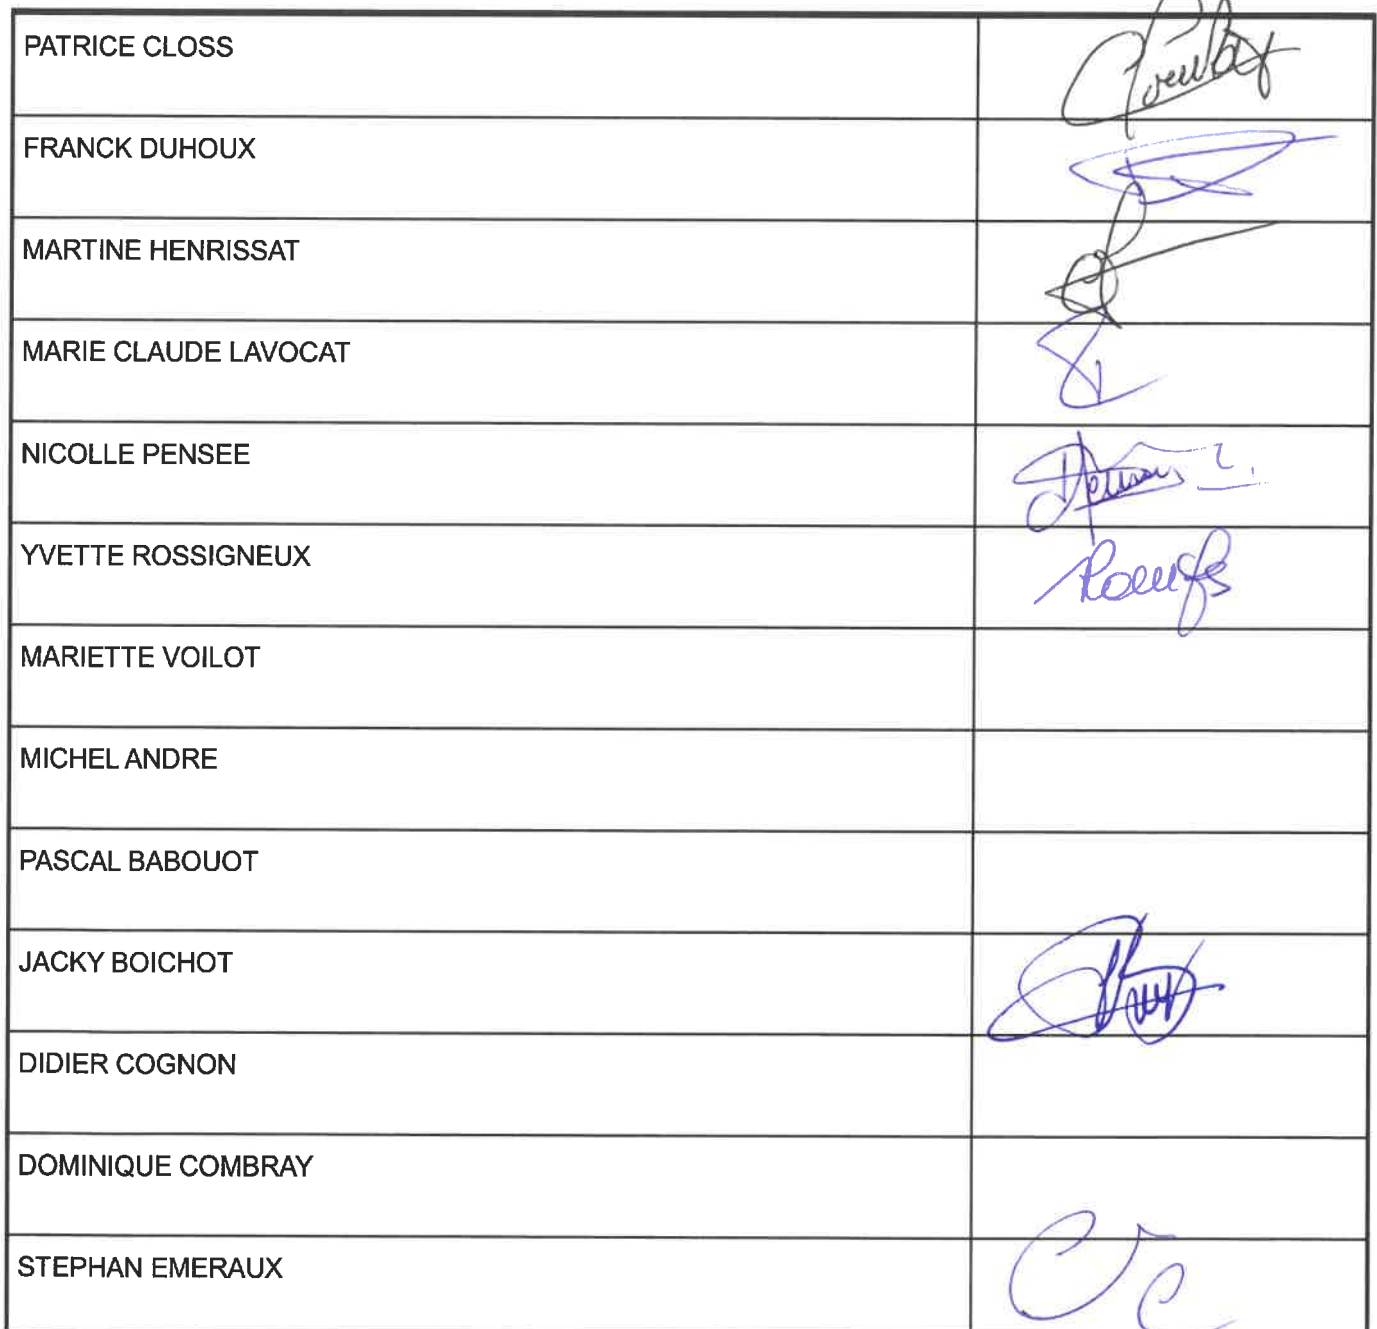 PATRICE CLOSS
FRANCK DUHOUX
MARTINE HENRISSAT
MARIE CLAUDE LAVOCAT
NICOLLE PENSEE
YVETTE ROSSIGNEUX
MARIETTE VOILOT
MICHEL ANDRE
PASCAL BABOUOT
JACKY BOICHOT
DIDIER COGNON
DOMINIQUE COMBRAY
STEPHAN EMERAUX